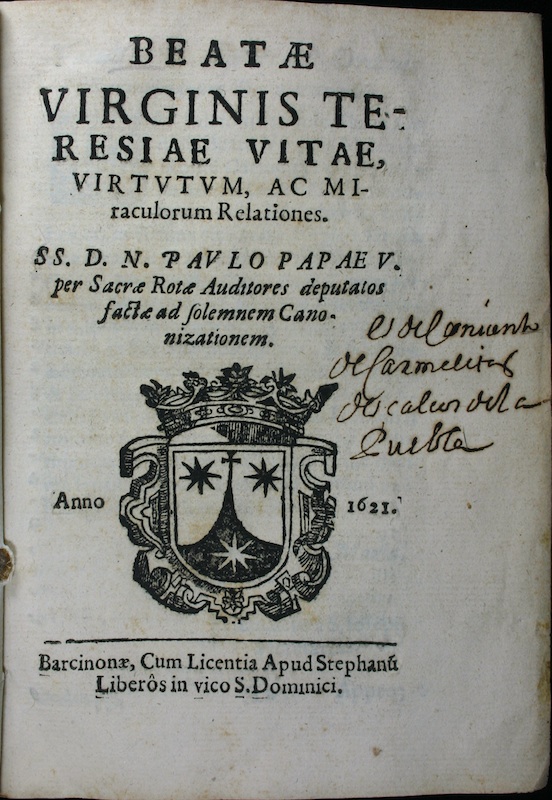 BEATÆ
VIRGINIS TE-
RESIAE VITAE,
VIRTVTVM, AC MI-
raculorum Relationes.
SS. D. N. PAVLO PAPAE V.
per Sacræ Rotæ Auditores deputatos
factæ ad ſolemnem Cano-
nizationem.
es del Conuento
de Carmelitas
descalcos de la
Puebla
Anno 1621.
Barcinonæ, Cum Licentia Apud Stephanū
Liberôs in vico S. Dominici.